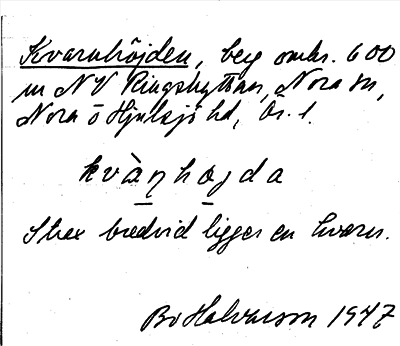 Kvarnhöjden, berg omkr. 600
m NV Ringshyttan, Nora sn,
Nora o Hjulsjö hd, Ör. l.
kvàηhœjda
Strax bredvid ligger en kvarn.
Bo Halvarson 1947